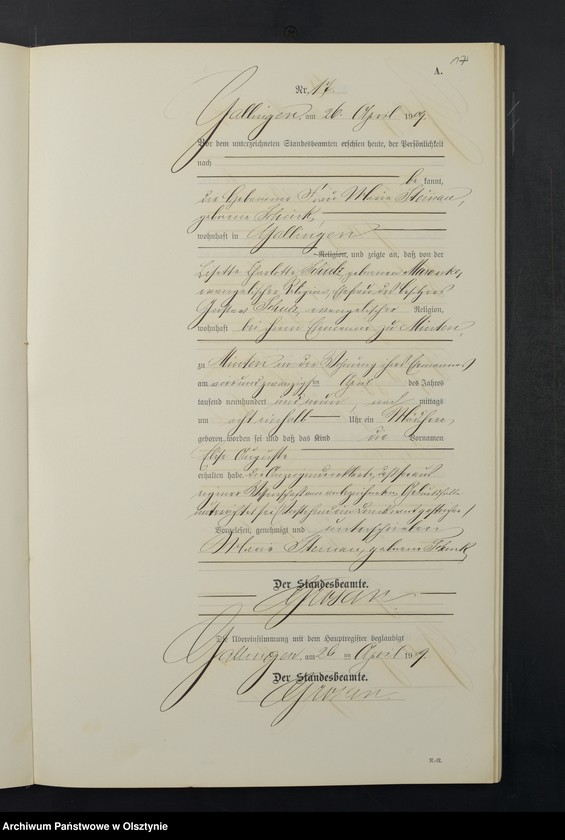 17
A.
Nr. 17
Gallingen, am 26. April 1909.
Vor dem unterzeichneten Standesbeamten erschien heute, der Persönlichkeit
nach
be kannt,
die Hebamme Frau Marie Steinau,
geborene
wohnhaft in Gallingen
Religion, und zeigte an, daß von der
Lisette Charlotte geborenen
evangelischer Religion, Ehefrau des Besitzers
Gustav evangelischer Religion,
wohnhaft bei ihrem Ehemanne zu Minten,
zu Minten in der Wohnung ihres Ehemannes
am vierundzwanzigsten April des Jahres
tausend neunhundert und neun, nach mittags
um acht einhalb Uhr ein Mädchen
geboren worden sei und daß das Kind die Vornamen
Elise Auguste
erhalten habe. Die Anzeigende erklärte, daß sie aus
eigener Wissenschaft von vorbezeichnetem Geburtsfalle
unterrichtet sei. Vorstehend ein Druckwort gestrichen.
Vorgelesen, genehmigt und unterschrieben
Marie Steinau, geborene
Der Standesbeamte.
Grosan
Die Übereinstimmung mit dem Hauptregister beglaubigt
Gallingen, am 26 ten April 1909.
Der Standesbeamte.
Grosan
Archiwum Państwowe w Olsztynie